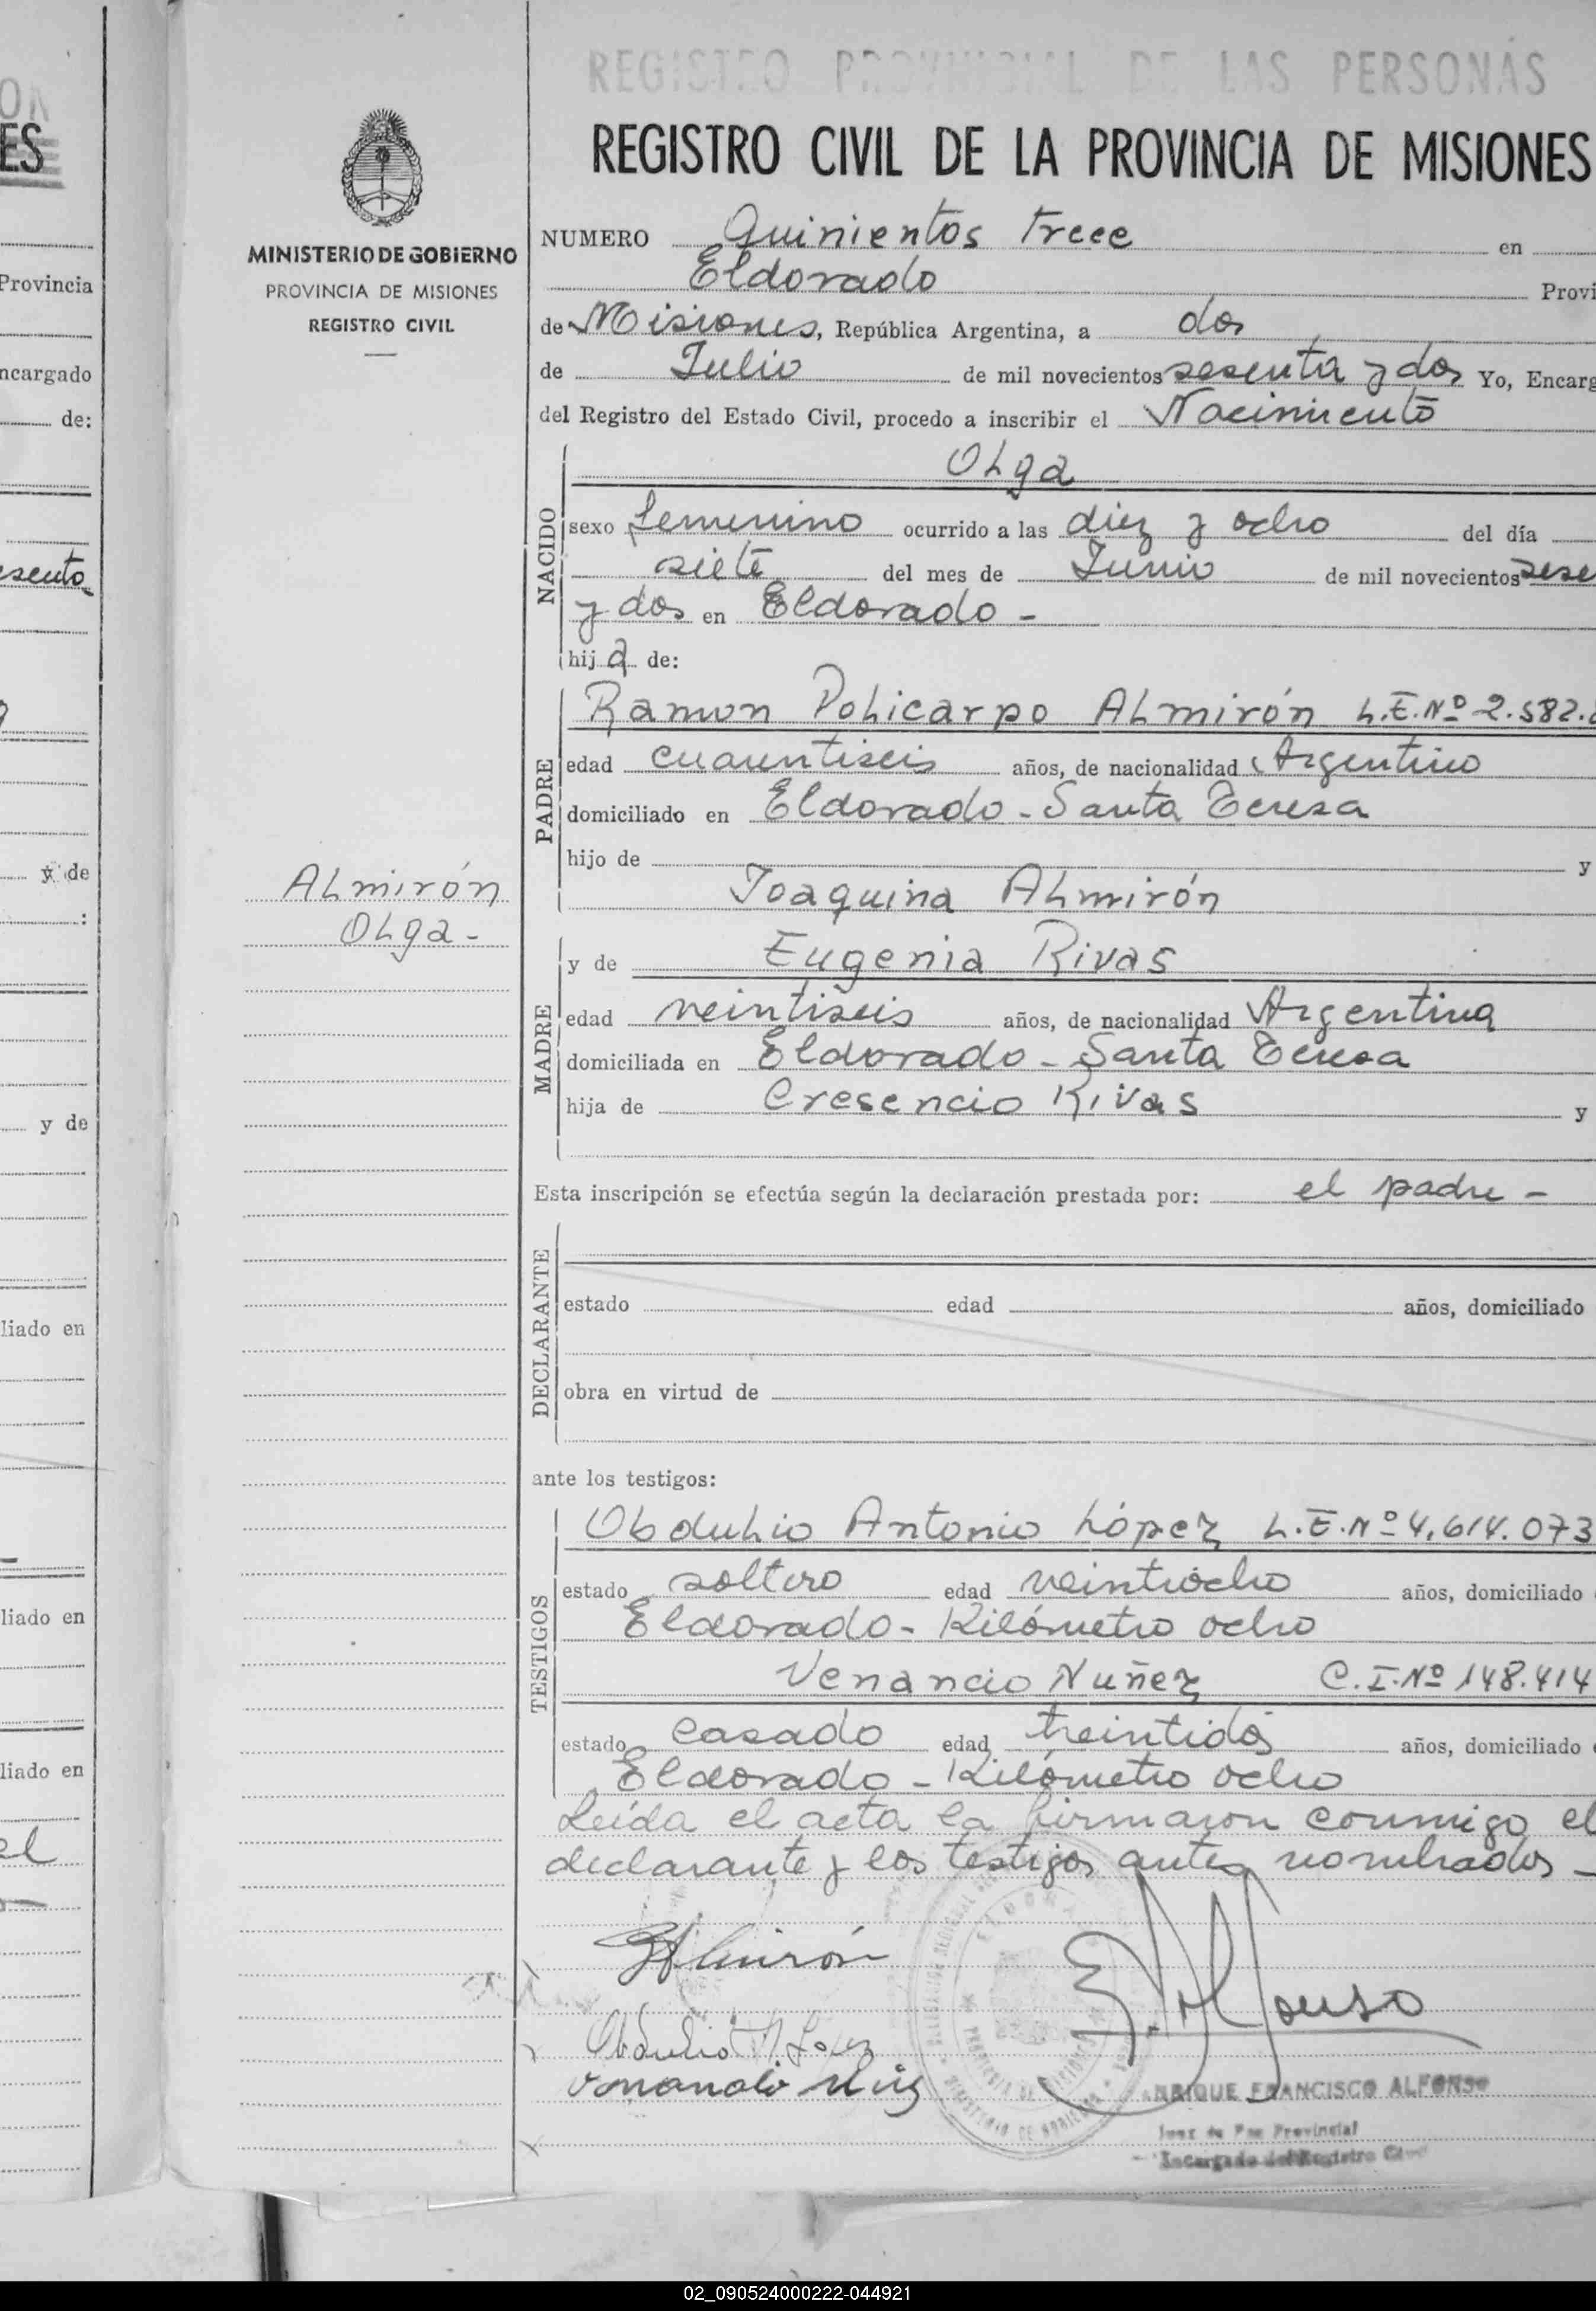 ON
ES
Provincia
ncargado
de:
esenta
y de
:
y de
liado en
liado en
liado en
el
MINISTERIO DE GOBIERNO
PROVINCIA DE MISIONES
REGISTRO CIVIL
Almirón
Olga -
REGISTRO PROVINCIAL DE LAS PERSONAS
REGISTRO CIVIL DE LA PROVINCIA DE MISIONES
NUMERO Quinientos trece en
Eldorado Provi
de Misiones, República Argentina, a dos
de Julio de mil novecientos sesenta y dos Yo, Encarg
del Registro del Estado Civil, procedo a inscribir el Nacimiento
NACIDO
Olga
sexo femenino ocurrido a las diez y ocho del día
siete del mes de Junio de mil novecientos sese
y dos en Eldorado -
hija de:
PADRE
Ramon Policarpo Almirón L.E.Nº 2.582.
edad cuarentiseis años, de nacionalidad Argentino
domiciliado en Eldorado - Santa Teresa
hijo de y
Joaquina Almirón
MADRE
y de Eugenia Rivas
edad veintiseis años, de nacionalidad Argentina
domiciliada en Eldorado - Santa Teresa
hija de Cresencio Rivas y
Esta inscripción se efectúa según la declaración prestada por: el padre -
DECLARANTE
estado edad años, domiciliado
obra en virtud de
ante los testigos:
TESTIGOS
Obdulio Antonio López L.E.Nº 4.614.073
estado soltero edad veintiocho años, domiciliado
Eldorado - Kilómetro ocho
Venancio Nuñez C.I.Nº 148.414
estado casado edad treintidós años, domiciliado
Eldorado - Kilómetro ocho
Leída el acta la firmaron conmigo el
declarante y los testigos antes nombrados -
Almirón
Obdulio A López
E. Alfonso
ENRIQUE FRANCISCO ALFONSO
Juez de Paz Provincial
Encargado del Registro Civil
02_090524000222-044921